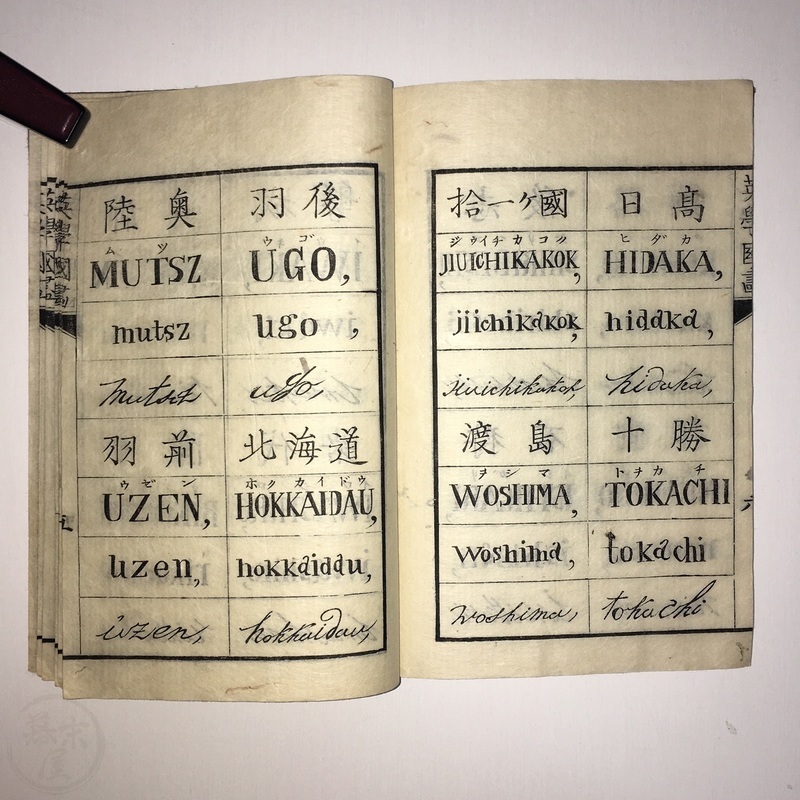 陸奥
ムツ
MUTSZ
mutsz
mutsz
羽前
ウゼン
UZEN,
uzen,
uzen,
羽後
ウゴ
UGO,
ugo,
ugo,
北海道
ホクカイドウ
HOKKAIDAU,
hokkaidau,
hokkaidau,
拾一ケ國
ジウイチカコク
JIUICHIKAKOK,
jiichikakok,
jiuichikakok,
渡島
ヲシマ
WOSHIMA,
woshima,
woshima,
日高
ヒダカ
HIDAKA,
hidaka,
hidaka,
十勝
トチカチ
TOKACHI
tokachi
tokachi
六